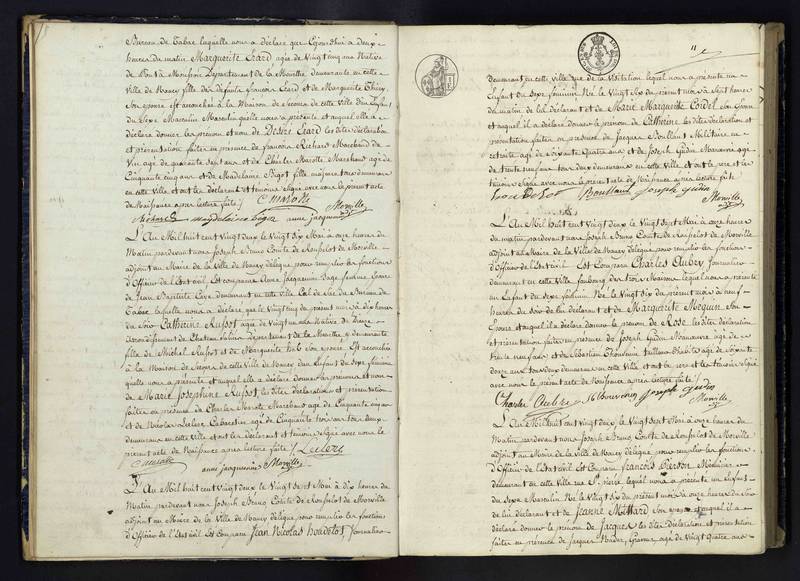 Bureau de Tabac laquelle nous a déclaré que Cejourdhui à Deux
heures du matin Marguerite Erard, agée de Vingt cinq ans Native
de Pont à Mousson Département de la Meurthe demeurante en cette
Ville de Nancy fille des défunts françois Erard et de Marguerite
Son épouse est accouchée à la Maison de Secours de cette Ville d'un Enfant
du Sexe Masculin qu'elle nous a présenté et auquel elle a
déclaré donner les prénom et nom de Désiré Erard les dites déclaration
et présentation faites en présence de françois Richard Marchand de
Vin agé de quarante Sept ans et de Charles Marotte Marchand agé de
Cinquante cinq ans et de Magdelaine Bigot fille majeure tous demeurans
en cette Ville et ont les déclarant et témoins Signé avec nous le présent acte
de Naissance après lecture faite / C marotte
Richard magdelaine bigot anne jacquemin Morville
L'An Mil huit cent Vingt Deux le Vingt Six Mai à onze heures du
Matin pardevant nous Joseph Bruno Comte de Morville
adjoint au Maire de la Ville de Nancy délégué pour remplir les fonctions
d'Officier de l'Etat civil Est comparue Anne Jacquemin Sage femme femme
de Jean Baptiste demeurant en cette Ville du Bureau de
Tabac laquelle nous a déclaré que le Vingt cinq du présent mois à dix heures
du Soir Catherine Russot agée de Vingt ans Native de Dieuze
arrondissement de Chateau Salins département de la Meurthe y demeurante
fille de Michel Russot et de Marguerite Son épouse, Est accouchée
à la Maison de Secours de cette Ville de Nancy d'un Enfant du Sexe féminin
qu'elle nous a présenté et auquel elle a déclaré donner les prénoms et nom
de Marie Josephine Russot les dites déclaration et présentation
faites en présence de Charles Marotte Marchand agé de Cinquante cinq ans
et de Nicolas Leclerc Cabaretier agé de Cinquante trois ans tous deux
demeurans en cette Ville et ont les déclarant et témoins Signé avec nous le
présent acte de Naissance après lecture faite / Leclerc
C marotte anne jacquemin Morville
L'An Mil huit cent Vingt deux le Vingt Sept Mai à dix heures du
Matin pardevant nous Joseph Bruno Comte de Morville
adjoint au Maire de la Ville de Nancy délégué pour remplir les fonctions
d'Officier de l'Etat civil Est Comparu Jean Nicolas houdelot,
11
demeurant en cette Ville rue de la Visitation lequel nous a présenté un
Enfant du Sexe féminin Né le Vingt Six du présent mois à Sept heures
du matin de lui déclarant et de Marie Marguerite Cordel Son épouse
et auquel il a déclaré donner le prénom de Catherine les dites déclaration et
présentation faites en présence de Jacques Boullant Militaire en
retraite agé de Soixante Quatre ans et de Joseph Gudin Manœuvre agé
de trente neuf ans tous deux demeurans en cette Ville et ont le père et les
témoins Signé avec nous le présent acte de Naissance après lecture faite
Boullant Joseph Gudin
Morville
L'An Mil huit cent Vingt deux le Vingt Sept Mai à onze heures
du Matin pardevant nous Joseph Bruno Comte de Morville
adjoint au Maire de la Ville de Nancy délégué pour remplir les fonctions
d'Officier de l'Etat civil Est Comparu Charles Aubry
demeurant en cette Ville faubourg des trois Maisons lequel nous a présenté
un Enfant du Sexe féminin Né le Vingt Six du présent mois à neuf
heures du Soir de lui déclarant et de Marguerite Mequin Son
épouse et auquel il a déclaré donner le prénom de Rose les dites déclaration
et présentation faites en présence de Joseph Gudin Manœuvre agé de
trente neuf ans et de Sébastien Thouvenin Tailleur d'habits agé de Soixante
douze ans tous deux demeurans en cette Ville et ont le père et les témoins Signé
avec nous le présent acte de Naissance après lecture faite /
Charles Joseph Gudin
Morville
L'An Mil huit cent Vingt deux, le Vingt Sept Mai à onze heures du
Matin pardevant nous Joseph Bruno Comte de Morville
adjoint au Maire de la Ville de Nancy délégué pour remplir les fonctions
d'Officier de l'Etat civil Est Comparu françois Pierson
demeurant en cette Ville rue St. pierre lequel nous a présenté un Enfant
du Sexe Masculin Né le Vingt Six du présent mois à onze heures du Soir
de lui déclarant et de Jeanne Son épouse et auquel il a
déclaré donner le prénom de Jacques les dites déclaration et présentation
faites en présence de Jacques Graveur agé de Vingt Quatre ans